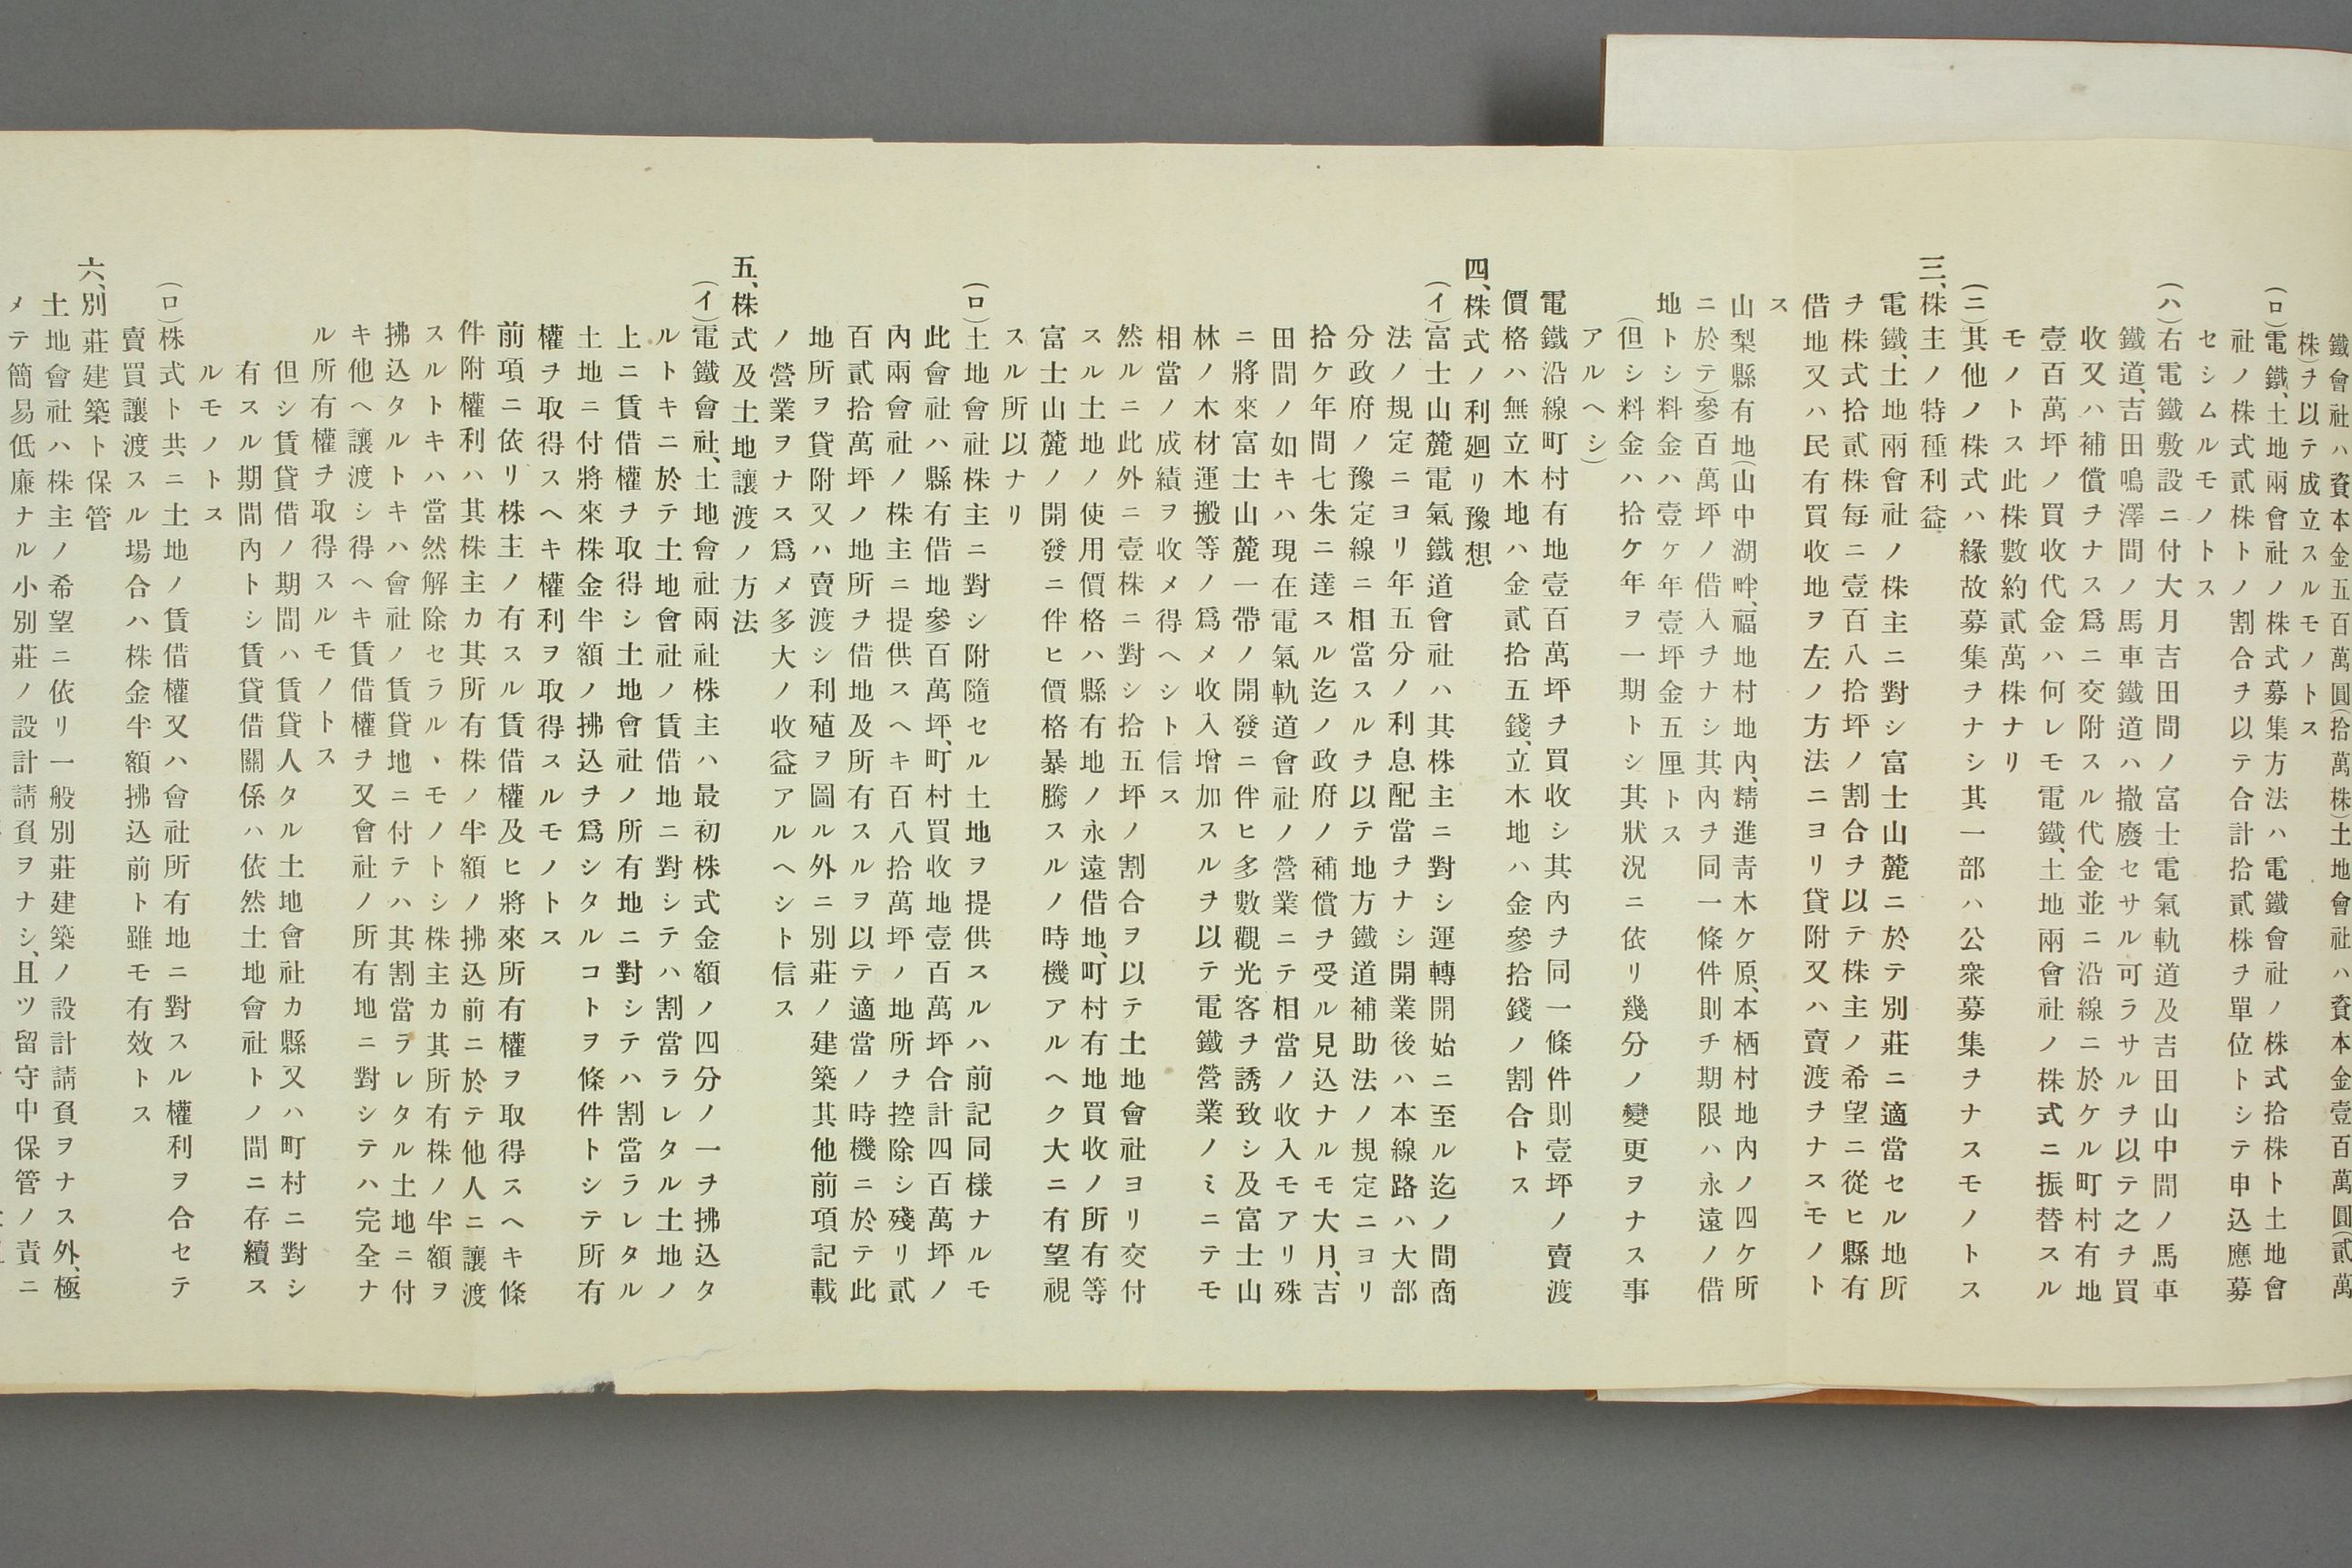 鐵會社ハ資本金五百萬圓(拾萬株)土地會社ハ資本金壹百萬圓(貳萬
株)ヲ以テ成立スルモノトス
(ロ)電鐵、土地兩會社ノ株式募集方法ハ電鐵會社ノ株式拾株ト土地會
社ノ株式貳株トノ割合ヲ以テ合計拾貳株ヲ單位トシテ申込應募
セシムルモノトス
(ハ)右電鐵敷設ニ付大月吉田間ノ富士電氣軌道及吉田山中間ノ馬車
鐵道、吉田鳴澤間ノ馬車鐵道ハ撤廢セサル可ラサルヲ以テ之ヲ買
收又ハ補償ヲナス爲ニ交附スル代金並ニ沿線ニ於ケル町村有地
壹百萬坪ノ買收代金ハ何レモ電鐵、土地兩會社ノ株式ニ振替スル
モノトス此株數約貳萬株ナリ
(ニ)其他ノ株式ハ緣故募集ヲナシ其一部ハ公衆募集ヲナスモノトス
三、株主ノ特種利益
電鐵、土地兩會社ノ株主ニ對シ富士山麓ニ於テ別莊ニ適當セル地所
ヲ株式拾貳株每ニ壹百八拾坪ノ割合ヲ以テ株主ノ希望ニ從ヒ縣有
借地又ハ民有買收地ヲ左ノ方法ニヨリ貸附又ハ賣渡ヲナスモノト
ス
山梨縣有地(山中湖畔、福地村地內、精進靑木ケ原、本栖村地內ノ四ケ所
ニ於テ(參百萬坪ノ借入ヲナシ其內ヲ同一條件則チ期限ハ永遠ノ借
地トシ料金ハ壹ケ年壹坪金五厘トス
(但シ料金ハ拾ケ年ヲ一期トシ其狀況ニ依リ幾分ノ變更ヲナス事
アルヘシ)
電鐵沿線町村有地壹百萬坪ヲ買收シ其內ヲ同一條件則壹坪ノ賣渡
價格ハ無立木地ハ金貳拾五錢、立木地ハ金參拾錢ノ割合トス
四、株式ノ利廻リ豫想
(イ)富士山麓電氣鐵道會社ハ其株主ニ對シ運轉開始ニ至ル迄ノ間商
法ノ規定ニヨリ年五分ノ利息配當ヲナシ開業後ハ本線路ハ大部
分政府ノ豫定線ニ相當スルヲ以テ地方鐵道補助法ノ規定ニヨリ
拾ケ年間七朱ニ達スル迄ノ政府ノ補償ヲ受ル見込ナルモ大月、吉
田間ノ如キハ現在電氣軌道會社ノ營業ニテ相當ノ收入モアリ殊
ニ將來富士山麓一帶ノ開發ニ伴ヒ多數觀光客ヲ誘致シ及富士山
林ノ木材運搬等ノ爲メ收入增加スルヲ以テ電鐵營業ノミニテモ
相當ノ成績ヲ收メ得ヘシト信ス
然ルニ此外ニ壹株ニ對シ拾五坪ノ割合ヲ以テ土地會社ヨリ交付
スル土地ノ使用價格ハ縣有地ノ永遠借地、町村有地買收ノ所有等
富士山麓ノ開發ニ伴ヒ價格暴騰スルノ時機アルヘク大ニ有望視
スル所以ナリ
(ロ)土地會社株主ニ對シ附隨セル土地ヲ提供スルハ前記同樣ナルモ
此會社ハ縣有借地參百萬坪、町村買收地壹百萬坪合計四百萬坪ノ
內兩會社ノ株主ニ提供スヘキ百八拾萬坪ノ地所ヲ控除シ殘リ貳
百貳拾萬坪ノ地所ヲ借地及所有スルヲ以テ適當ノ時機ニ於テ此
地所ヲ貸附又ハ賣渡シ利殖ヲ圖ル外ニ別莊ノ建築其他前項記載
ノ營業ヲナス爲メ多大ノ收益アルヘシト信ス
五、株式及土地讓渡ノ方法
(イ)電鐵會社、土地會社兩社株主ハ最初株式金額ノ四分ノ一ヲ拂込タ
ルトキニ於テ土地會社ノ賃借地ニ對シテハ割當ラレタル土地ノ
上ニ賃借權ヲ取得シ土地會社ノ所有地ニ對シテハ割當ラレタル
土地ニ付將來株金半額ノ拂込ヲ爲シタルコトヲ條件トシテ所有
權ヲ取得スヘキ權利ヲ取得スルモノトス
前項ニ依リ株主ノ有スル賃借權及ヒ將來所有權ヲ取得スヘキ條
件附權利ハ其株主カ其所有株ノ半額ノ拂込前ニ於テ他人ニ讓渡
スルトキハ當然解除セラルヽモノトシ株主カ其所有株ノ半額ヲ
拂込タルトキハ會社ノ賃貸地ニ付テハ其割當ラレタル土地ニ付
キ他ヘ讓渡シ得ヘキ賃借權ヲ又會社ノ所有地ニ對シテハ完全ナ
ル所有權ヲ取得スルモノトス
但シ賃貸借ノ期間ハ賃貸人タル土地會社カ縣又ハ町村ニ對シ
有スル期間內トシ賃貸借關係ハ依然土地會社トノ間ニ存續ス
ルモノトス
(ロ)株式ト共ニ土地ノ賃借權又ハ會社所有地ニ對スル權利ヲ合セテ
賣買讓渡スル場合ハ株金半額拂込前ト雖モ有效トス
六、別莊建築ト保管
土地會社ハ株主ノ希望ニ依リ一般別莊建築ノ設計請負ヲナス外、極
メテ簡易低廉ナル小別莊ノ設計請負ヲナシ、且ツ留守中保管ノ責ニ